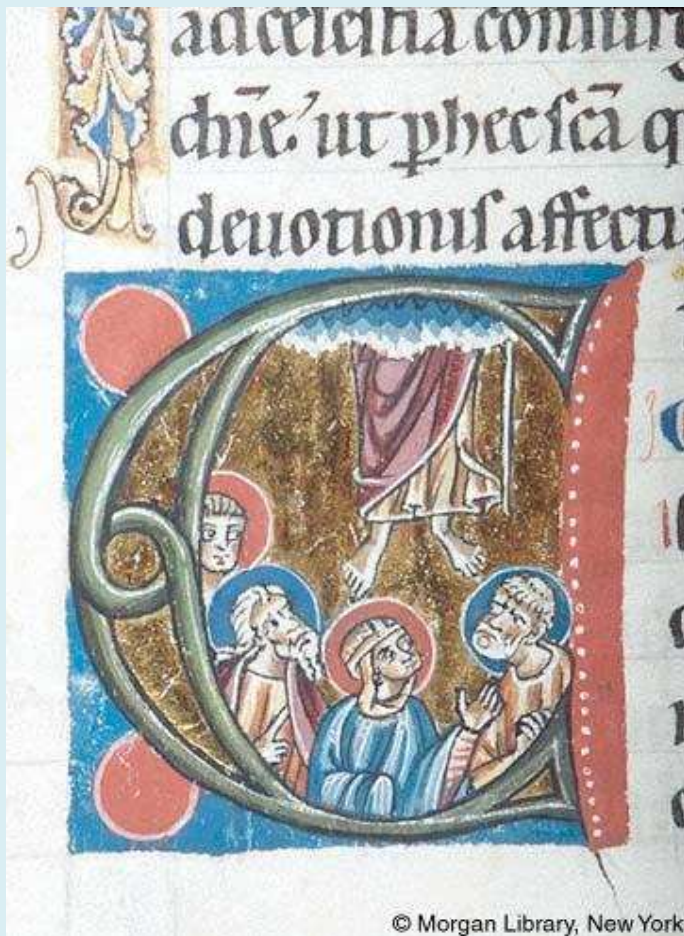 ad celeſtia conſurg
dn̄e ut ꝑ hec ſcā q
deuotioniſ affectu
© Morgan Library, New York